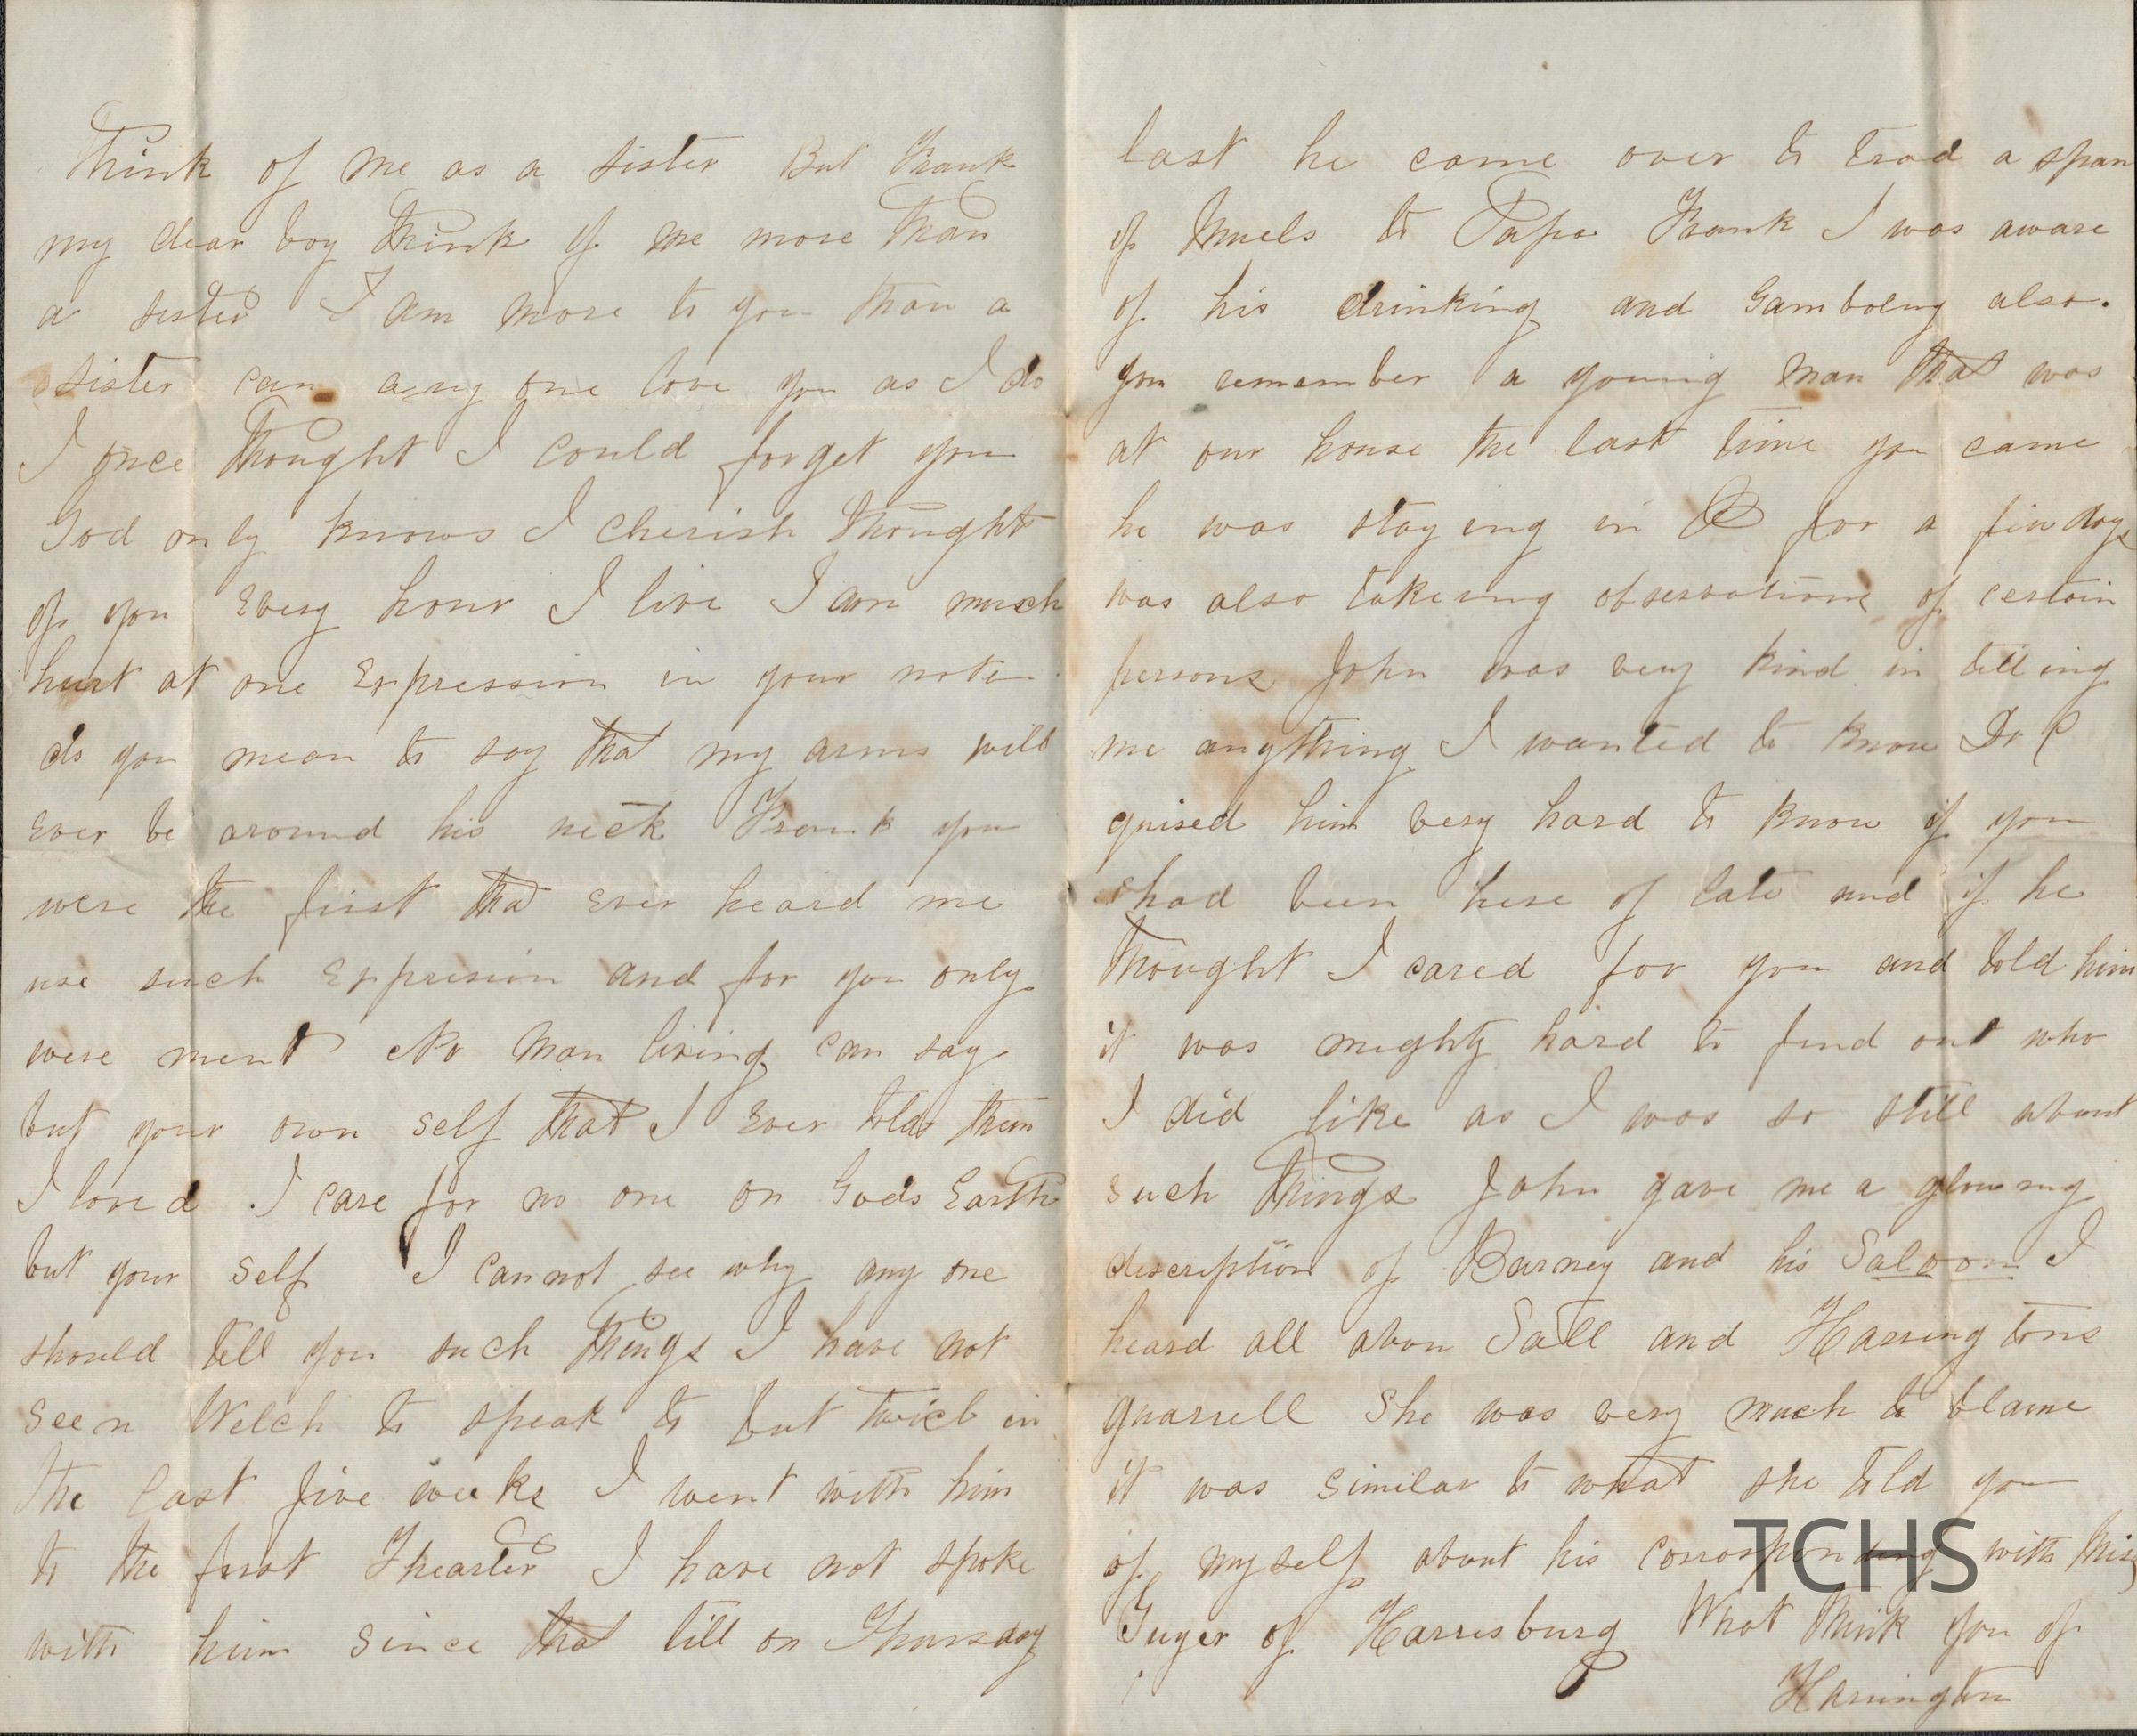 Think of me as a sister But Frank
my dear boy think of me more than
a sister I am more to you than a
sister can any one love you as I do
I once thought I could forget you
God only knows I cherish thought
of you Every hour I live I am much
hurt at one Expression in your note
do you mean to say that my arms will
Ever be around his neck Frank you
were the first that Ever heard me
use such Exppresion and for you only
were ment No man living can say
but your own self that I Ever told them
I loved . I care for no one on Gods Earth
but your self I cannot see why any one
should tell you such things I have not
seen Welch to speak to but twice in
the last five weeks I went with him
to the first Thearter I have not spoke
with him since that till on Thursday
last he come over to trad a span
of Muels to Papa Frank I was aware
of his drinking and Gamboling also.
you remember a young man that was
at our house the last time you came
he was staying in for a few days
was also takeing observations of certain
persons John was very kind in telling
me anything I wanted to know Dr C
quised him very hard to know if you
had been here of late and if he
thought I cared for you and told him
it was mighty hard to find out who
I did like as I was so still about
such things John gave me a glowing
description of Barney and his Saloon I
heard all abou Sall and Harringtons
quarrell She was very much to blame
it was similar to what she told you
of myself about his corrosponding with
Guyer of Harrisburg What think you of
Harrington
TCHS